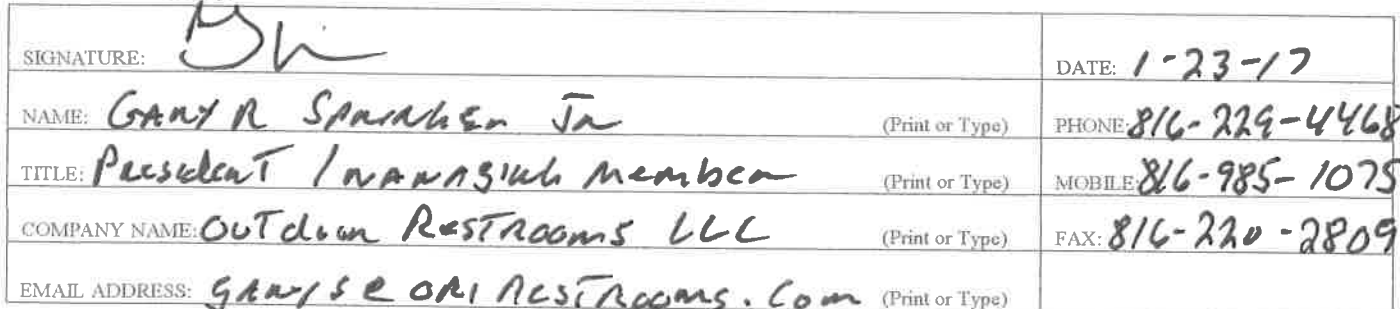 SIGNATURE: DATE: 1-23-17
NAME: GARY R Sprinkem Jr (Print or Type) PHONE: 816-229-4468
TITLE: President / managing member (Print or Type) MOBILE: 816-985-1075
COMPANY NAME: OUTdoor RESTROOMS LLC (Print or Type) FAX: 816-220-2809
EMAIL ADDRESS: garys@ORIRESTROOMS.Com (Print or Type)